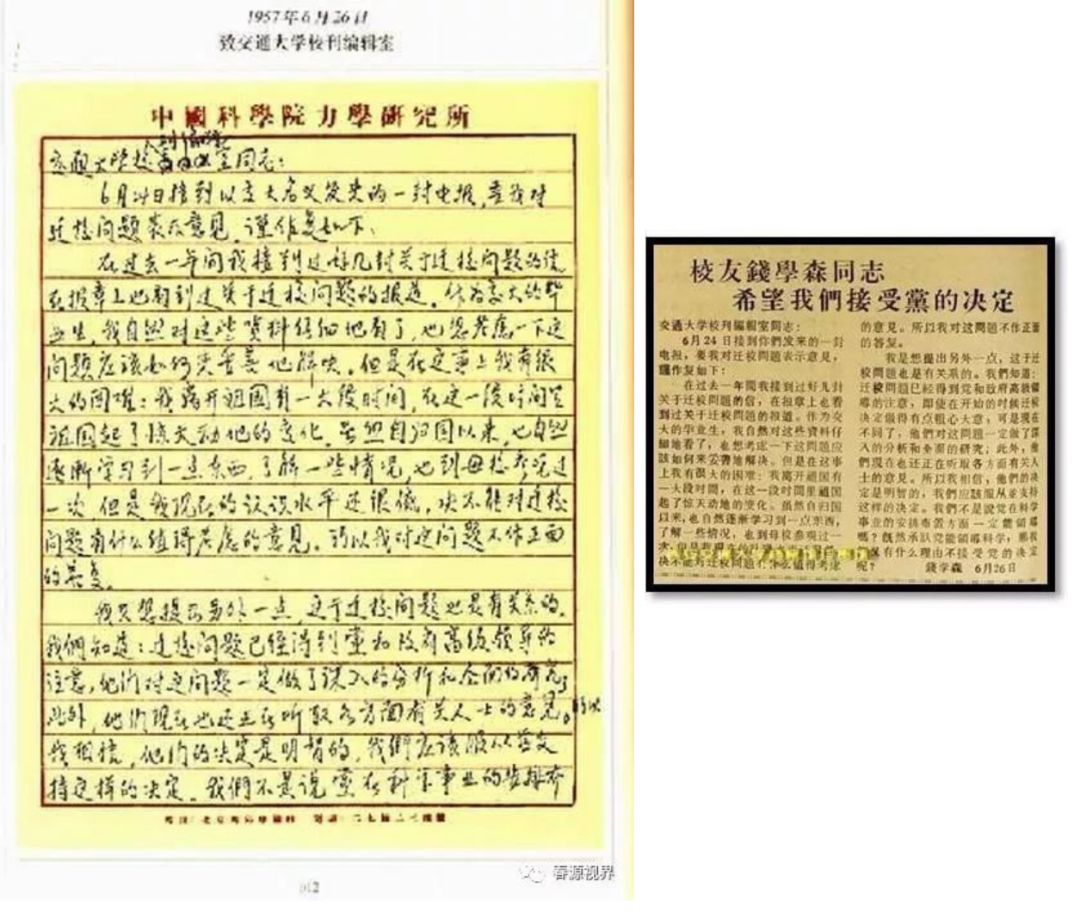 1957年6月26日
致交通大学校刊编辑室
中國科學院力學研究所
交通大学校刊编辑室同志：
6月24日接到以交大名义发来的一封电报，要我对
迁校问题表示意见，谨作复如下：
在过去一年间我接到过好几封关于迁校问题的信，
在报章上也看到过关于迁校问题的报道。作为交大的毕
业生，我自然对这些资料仔细地看了，也想考虑一下这
问题应该如何来妥善地解决。但是在这事上我有很
大的困难：我离开祖国有一大段时间，在这一段时间里
祖国起了惊天动地的变化。虽然自归国以来，也自然
逐渐学习到一点东西，了解一些情况，也到母校参观过
一次，但是我现在的认识水平还很低，决不能对迁校
问题有什么值得考虑的意见。所以我对这问题不作正面
的答复。
我只想提出另外一点，这于迁校问题也是有关系的。
我們知道：迁校问题已经得到党和政府高级领导的
注意，他们对这问题一定做了深入的分析和全面的研究；
此外，他们现在也还正在听取各方面有关人士的意见。所以
我相信，他们的决定是明智的，我們应该服从并支
持这样的决定。我們不是说党在科学事业的安排布
春源视界
012
校友錢學森同志
希望我們接受黨的决定
交通大学校刊編輯室同志：
6月24日接到你們发来的一封
电报，要我对迁校問題表示意見，
謹作复如下：
在过去一年間我接到过好几封
关于迁校問題的信，在报章上也看
到过关于迁校問題的报道。作为交
大的毕业生，我自然对这些资料仔
細地看了，也想考虑一下这問題应
該如何来妥善地解决。但是在这事
上我有很大的困难：我离开祖国有
一大段时間，在这一段时間里祖国
起了惊天动地的变化。虽然自归国
以来，也自然逐渐学习到一点东西，
了解一些情况，也到母校参观过一
次，但是我现在的
决不能对迁校問題有什么值得考虑
的意見。所以我对这問題不作正面
的答复。
我是想提出另外一点，这于迁
校問題也是有关系的。我們知道：
迁校問題已經得到党和政府高級領
導的注意，即使在开始的时候迁校
决定做得有点粗心大意，可是现在
不同了，他們对这問題一定做了深
入的分析和全面的研究；此外，他
們现在也还正在听取各方面有关人
士的意見。所以我相信，他們的决
定是明智的，我們应該服从並支持
这样的决定。我們不是說党在科学
事业的安排布置方面一定能領導
嗎？既然承认党能領導科学，那我
們有什么理由不接受党的决定
呢？
錢学森 6月26日